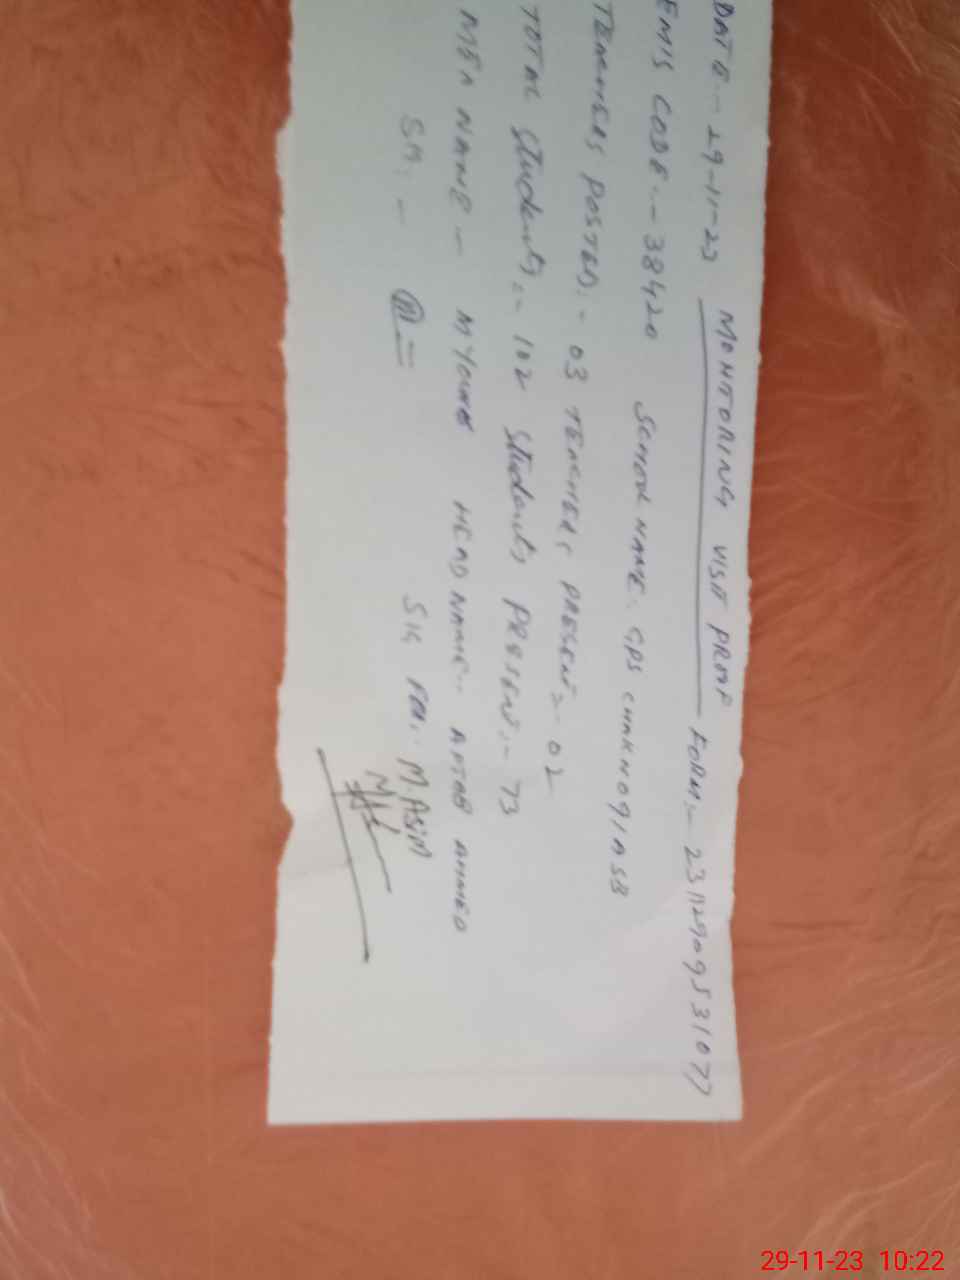 MONTORING VISIT PROOF
DATE-- 29-11-23 FORM:- 23112909531077
EMIS CODE.- 38420 SCHOOL NAME. GPS CHAKNO91ASB
TEACHERS POSTED:- 03 TEACHERS PRESENT- 02
TOTAL Students:- 102 Students PRESENT:- 73
MEA NAME- MYOUNAS HEAD NAME.. AFTAB AHMED
SIG - SIG FOR. M.ASIM
29-11-23 10:22